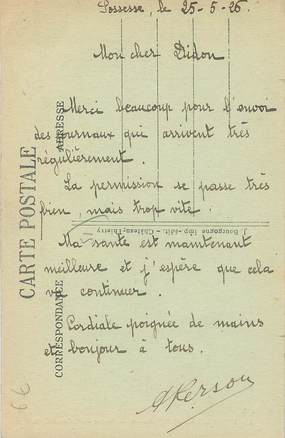 Sossesse, le 25-5-26.
Mon cher Didon
Merci beaucoup pour l'envoi
des journaux qui arrivent très
régulièrement.
La permission se passe très
bien, mais trop vite.
Ma santé est maintenant
meilleure et j'espère que cela
va continuer.
Cordiale poignée de mains
et bonjour à tous.
CARTE POSTALE
CORRESPONDANCE
ADRESSE
J. Bourgogne Imp.-édit. - Château-Thierry